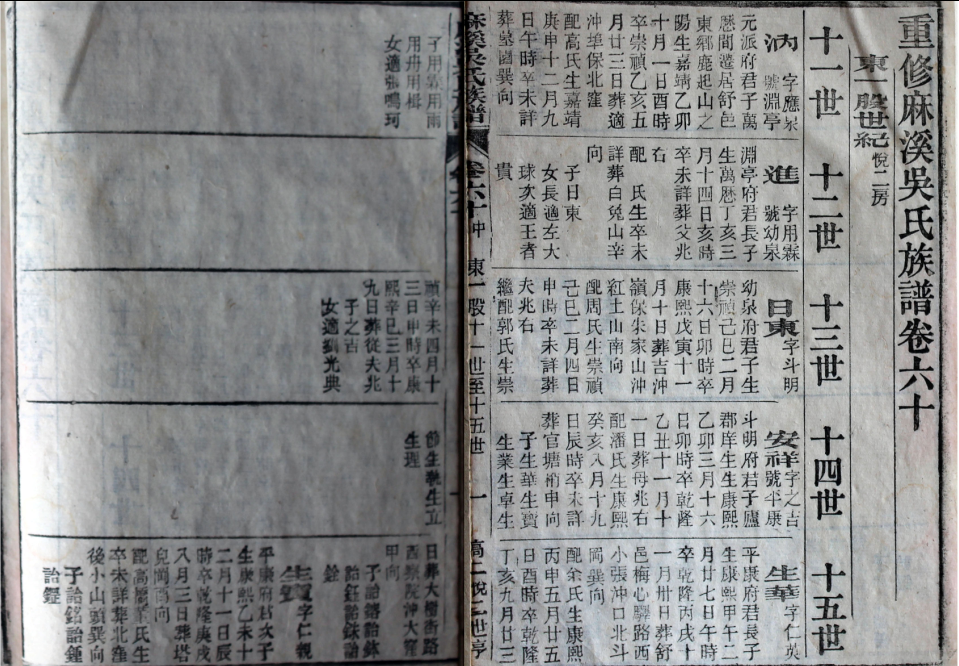 重修麻溪吳氏族譜卷六十
東一股世紀 悅二房
十一世
十二世
十三世
十四世
十五世
汭 字應泉
號淵亭
元派府君子萬
曆間遷居舒邑
東鄉鹿起山之
陽生嘉靖乙卯
十月一日酉時
卒崇禎乙亥五
月廿三日葬適
沖埠保北窪
配高氏生嘉靖
庚申十二月九
日午時卒未詳
葬塋圖巽向
子用霖用雨
用舟用楫
女適張鳴珂
進 字用霖
號幼泉
淵亭府君長子
生萬曆丁亥三
月十四日亥時
卒未詳葬父兆
右
配 氏生卒未
詳葬白兔山辛
向
子日東
女長適左大
球次適王者
貴
日東 字斗明
幼泉府君子生
崇禎己巳二月
十六日卯時卒
康熙戊寅十一
月十日葬吉沖
嶺保朱家山沖
紅土山南向
配周氏生崇禎
己巳二月四日
申時卒未詳葬
夫兆右
繼配郭氏生崇
禎辛未四月十
三日申時卒康
熙辛巳三月十
九日葬從夫兆
子之吉
女適劉光典
安祥 字之吉
號平康
斗明府君子廬
郡庠生生康熙
乙卯三月十六
日卯時卒乾隆
乙丑十一月十
一日葬母兆右
配潘氏生康熙
癸亥八月十九
日辰時卒未詳
葬官塘稍申向
子生華生寶
生業生卓生
節生執生立
生理
生華 字仁英
平康府君長子
生康熙甲午二
月廿七日午時
卒乾隆丙戌十
一月卅日葬舒
邑梅心驛路西
小張沖口北斗
岡巽向
配余氏生康熙
丙申五月廿五
日酉時卒乾隆
丁亥九月廿三
日葬大衖街路
西察院沖大窪
甲向
生寶 字仁親
平康府君次子
生康熙乙未十
二月十一日辰
時卒乾隆庚戌
八月三日葬塔
兒岡酉向
配高歷業氏生
卒未詳葬北窪
後小山頭巽向
麻溪吳氏族譜
卷六十 冲
東一股十一世至十五世
一